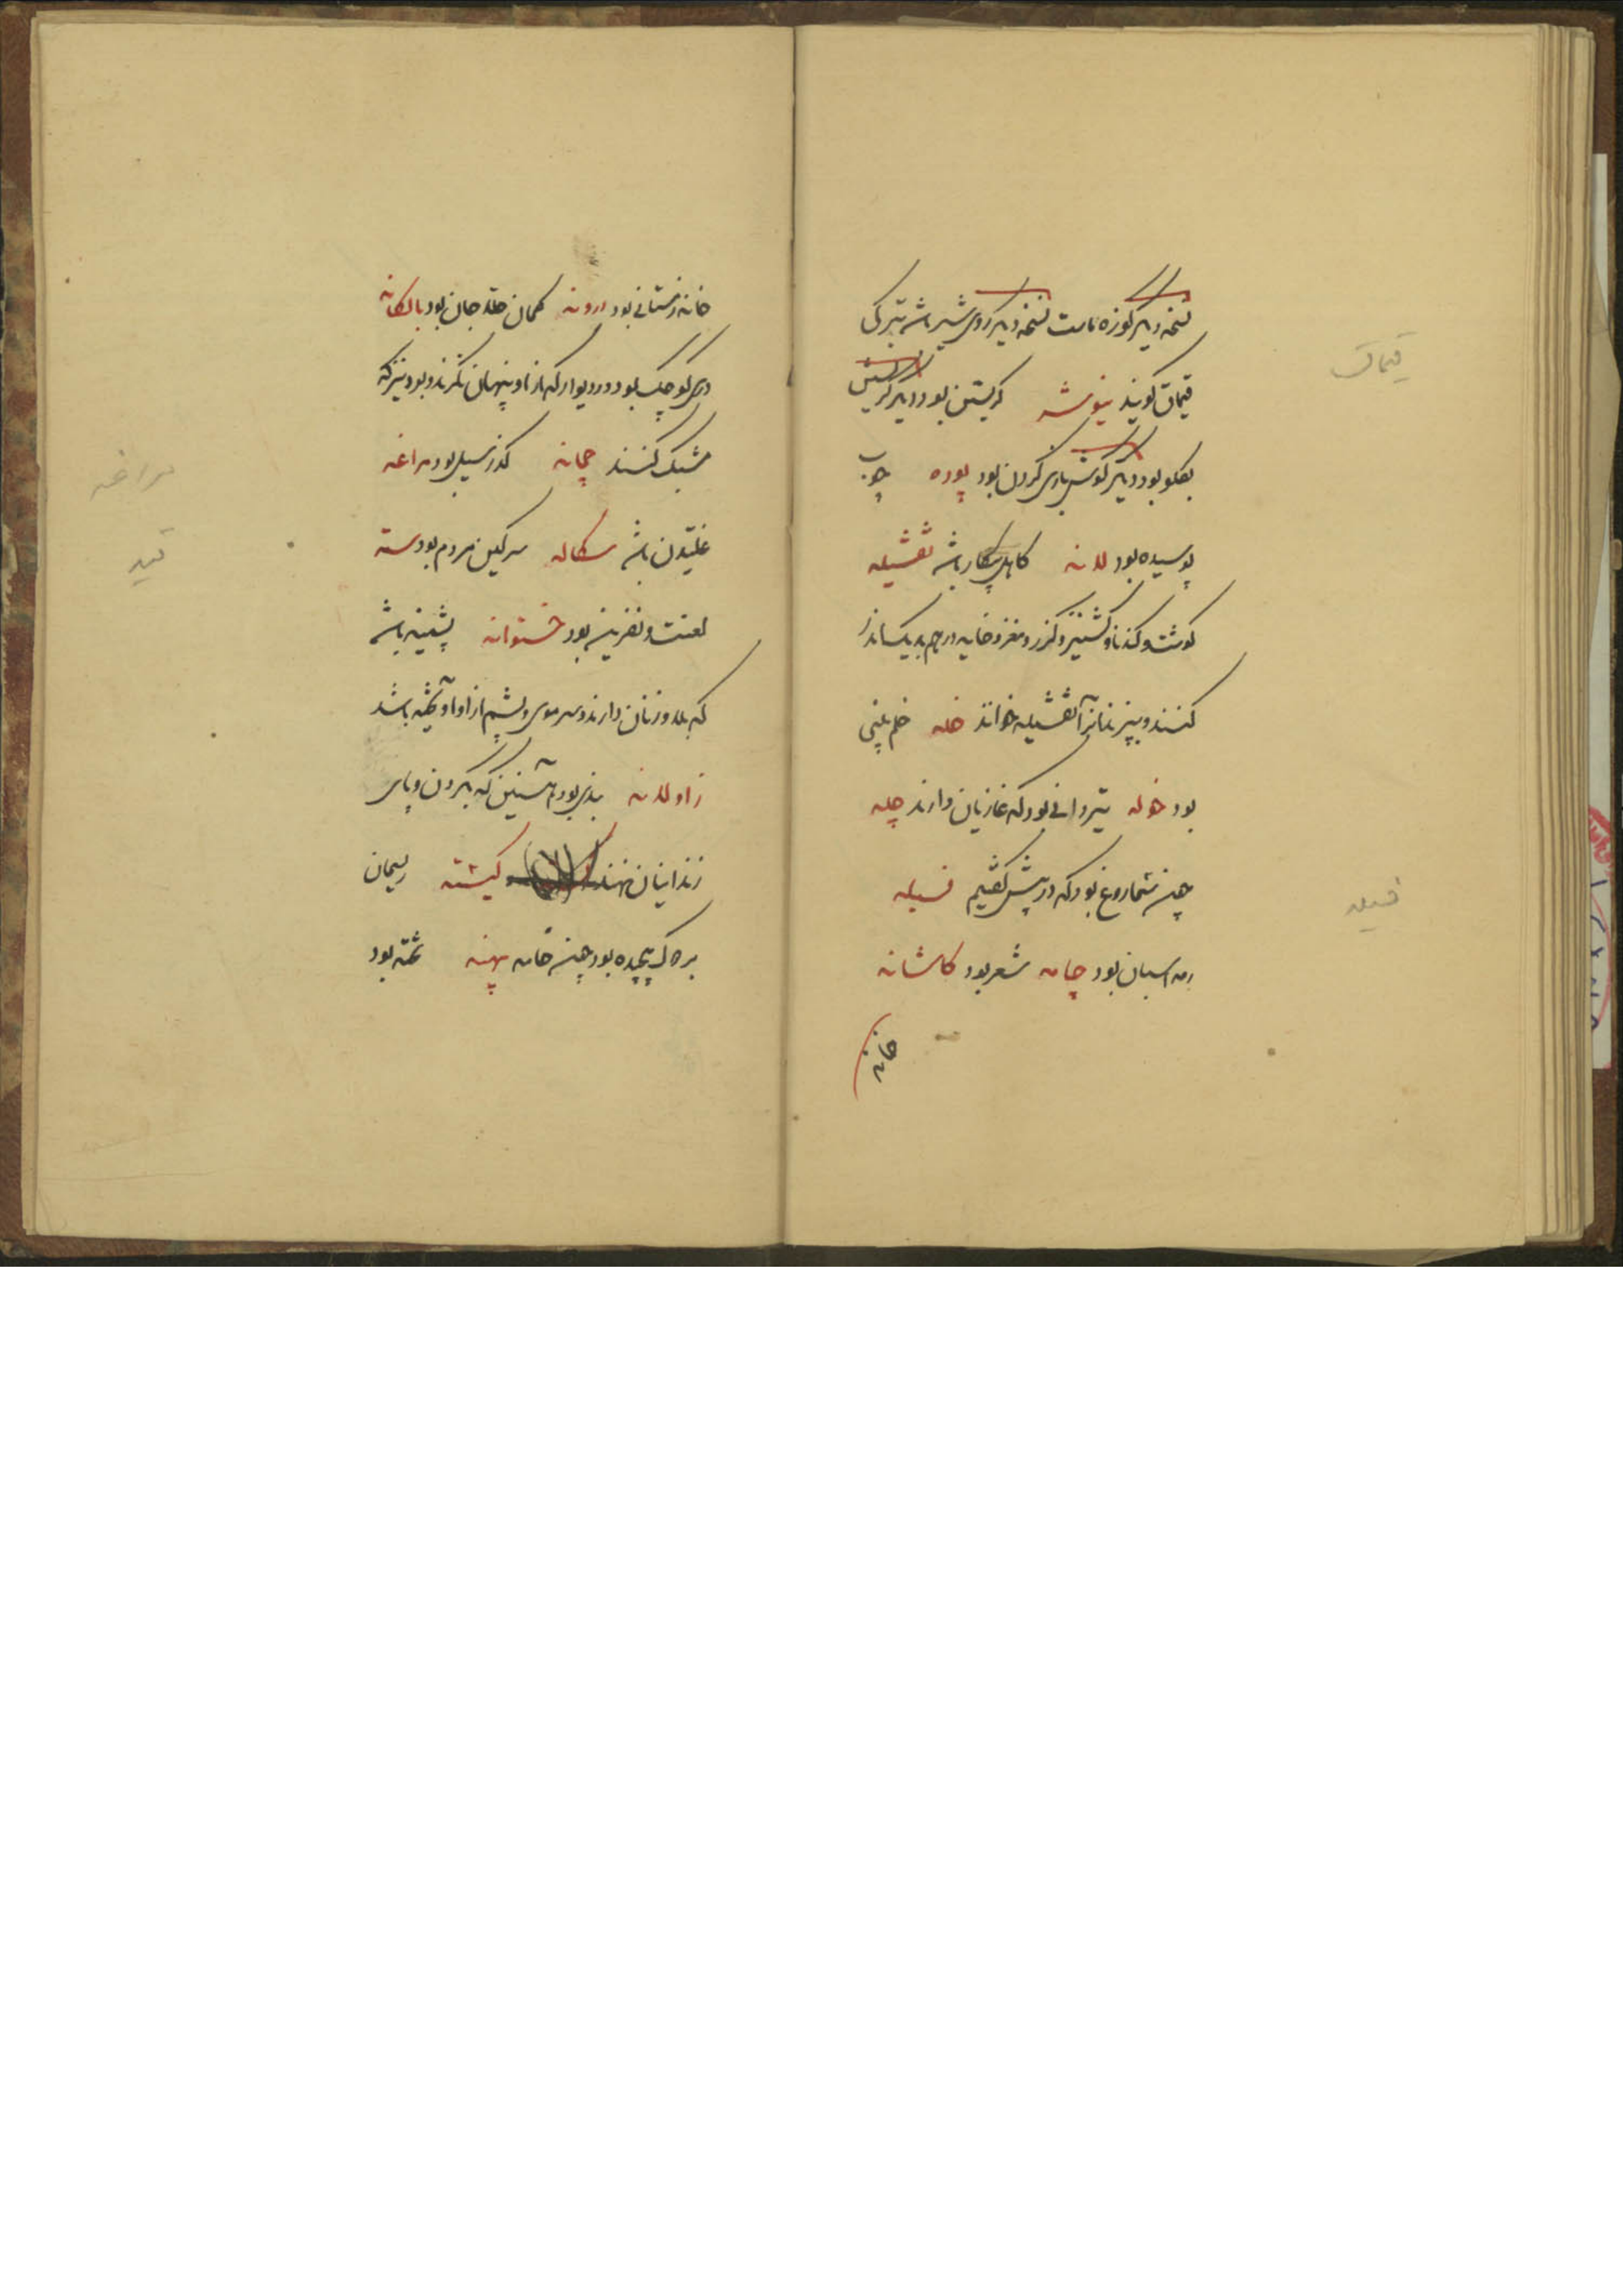 نسخه دیگر کوزه ماست نسخه دیگر روی شیر باشد بترکی
قیماق کویند نیوشه کریستن بود دیگر کریستن
بکلو بود دیگر کوش باری کردن بود پوده چوب
پوسیده بود لانه کاهل بیکار باشد تفشیله
کوشت و کندنا و کشنیز و کزر و مغز و خایه در هم بدیک اندر
کنند و بپزند آنرا تفشیله خوانند خله خلم بینی
بود خوله تیردانی بود که غازیان دارند چله
چیز شماروغ بود که در پیش کفتیم فسیله
رمه اسبان بود چامه شعر بود کاشانه
خانه
قیماق
فسیله
خانه زمستانی بود درونه کمان حلاجان بود بالکانه
دری کوچک بود در دیوار که از او پنهان نکرند و بود نیز که
مشبک کنند چمانه کدر سیل بود مراغه
غلتیدن باشد سکاله سرکین مردم بود سته
لعنت و نفرین بود خستوانه پشمینه باشد
که بلدوزنان دارند و سر موی و پشم از او آویخته باشد
زاولانه بندی بود آهنین که بر کردن و پای
زندانیان نهند کیشته ریسمان
بر هم پیچیده بود چیز خامه پهنه تخته بود
مراغه